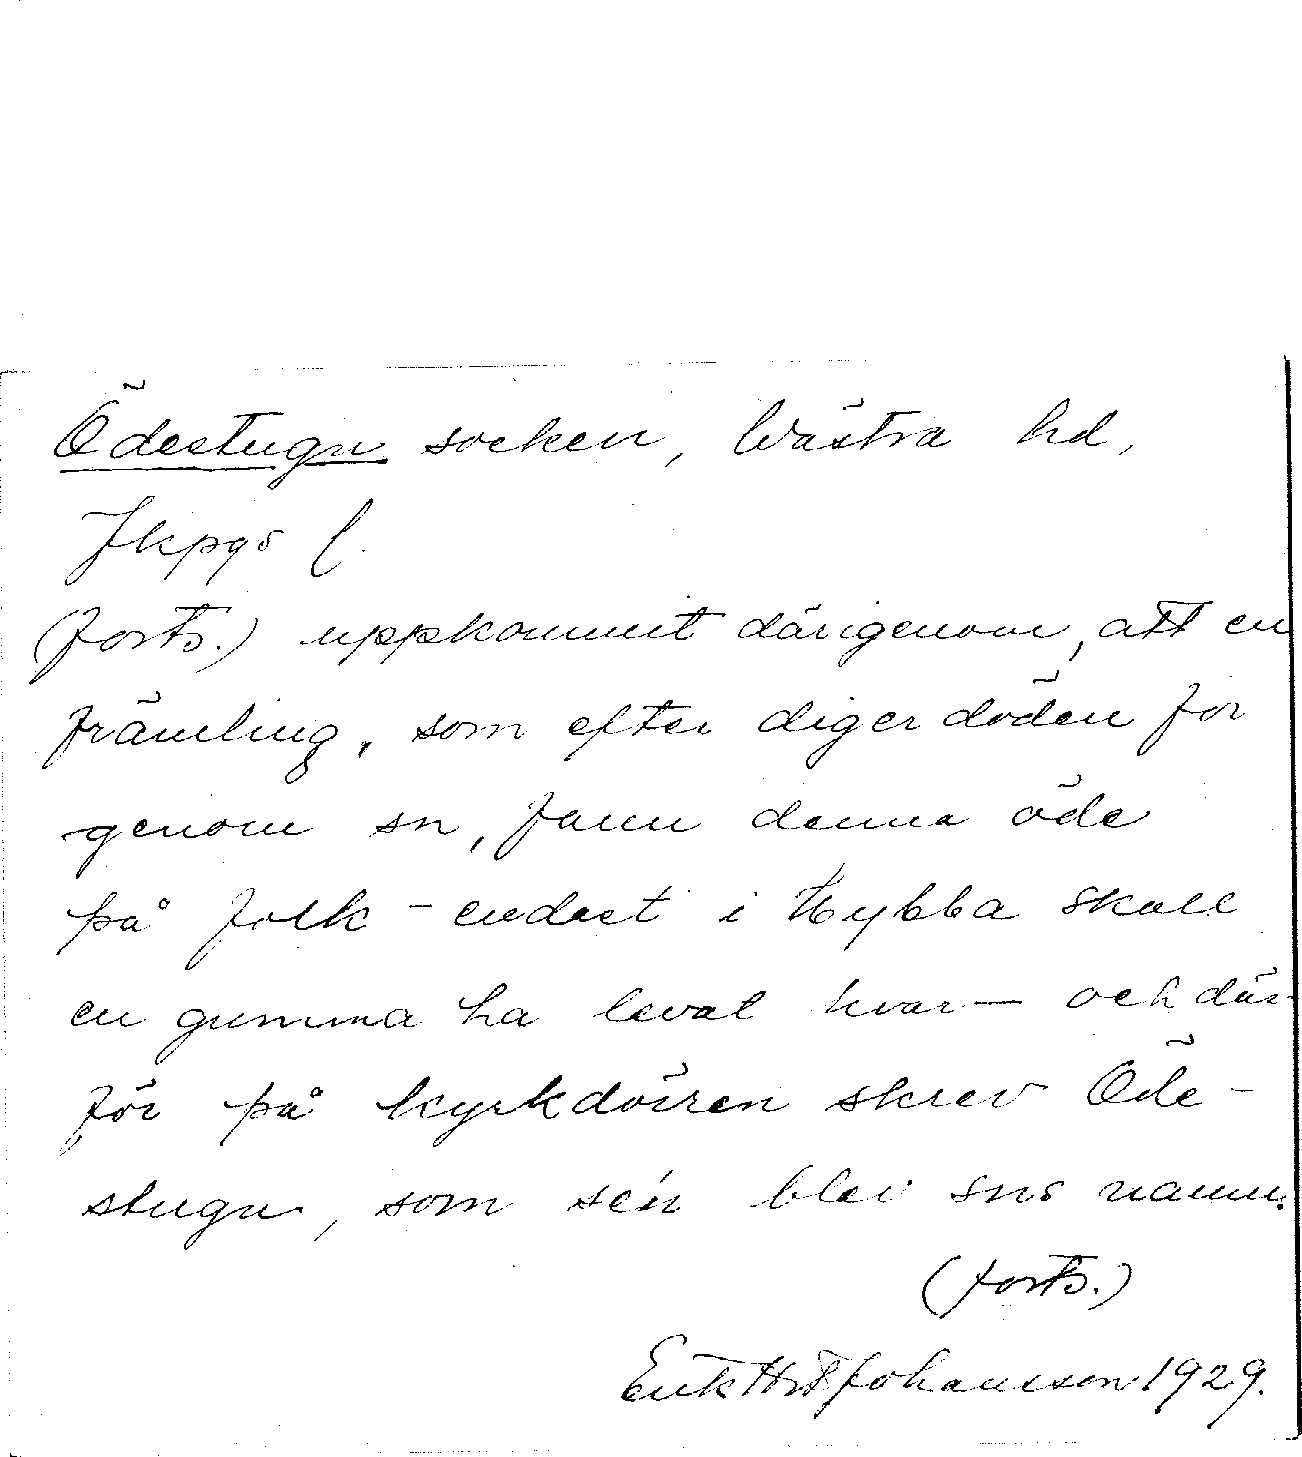 Ödestugu socken, Västra hd,
Jkpgs l.
(forts.) uppkommit därigenom, att en
främling, som efter digerdöden for
genom sn, fann denna öde
på folk - endast i Hybba skall
en gumma ha levat kvar — och där-
för på kyrkdörren skrev Öde-
stugu, som sén blev sns namn.
(forts.)
Erik Johansson 1929.